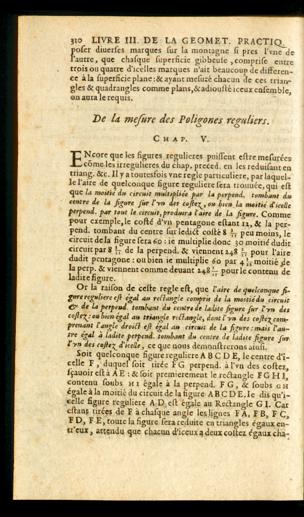 310 LIVRE III. DE LA GEOMET. PRACTIQ.
poser diverses marques sur la montagne si pres l'vne de
l'autre, que chasque superficie gibbeuse, comprise entre
trois ou quatre d'icelles marques n'ait beaucoup de differen-
ce à la superficie plane: & ayant mesuré chacun de ces trian-
gles & quadrangles comme plans, & adiousté iceux ensemble,
on aura le requis.
De la mesure des Poligones reguliers.
CHAP. V.
ENcore que les figures regulieres puissent estre mesurées
cõme les irregulieres du chap. preced. en les reduisant en
triang. &c. Il y a toutesfois vne regle particuliere, par laquel-
le l'aire de quelconque figure reguliere sera trouuée, qui est
que la moitié du circuit multipliée par la perpend. tombant du
centre de la figure sur l'vn des costez, ou bien la moitié d'icelle
perpend. par tout le circuit, produira l'aire de la figure. Comme
pour exemple, le costé d'vn pentagone estant 12, & la per-
pend. tombant du centre sur ledict costé 8 peu moins, le
circuit de la figure sera 60: ie multiplie donc 30 moitié dudit
circuit par 8 de la perpend. & viennent 248 pour l'aire
dudit pentagone: ou bien ie multiplie 60 par 4 moitié de
la perp. & viennent comme deuant 248 pour le contenu de
ladite figure.
Or la raison de ceste regle est, que l'aire de quelconque fi-
gure reguliere est égal au rectangle compris de la moitié du circuit
& de la perpend. tombant du centre de ladite figure sur l'vn des
costez: ou bien égal au triangle rectangle, dont l'vn des costez com-
prenant l'angle droict est égal au circuit de la figure: mais l'au-
tre égal à ladite perpend. tombant du centre de ladite figure sur
l'vn des costez d'icelle, ce que nous demonstrerons ainsi.
Soit quelconque figure reguliere ABCDE, le centre d'i-
celle F, duquel soit tirée FG perpend. à l'vn des costez,
sçauoir est à AE: & soit premierement le rectangle FGHI,
contenu soubs HI égale à la perpend. FG, & soubs GH
égale à la moitié du circuit de la figure ABCDE. Ie dis qu'i-
celle figure reguliere AD est égale au Rectangle GI. Car
estans tirées de F à chasque angle les lignes FA, FB, FC,
FD, FE, toute la figure sera reduite en triangles égaux en-
tr'eux, attendu que chacun d'iceux a deux costez égaux cha-